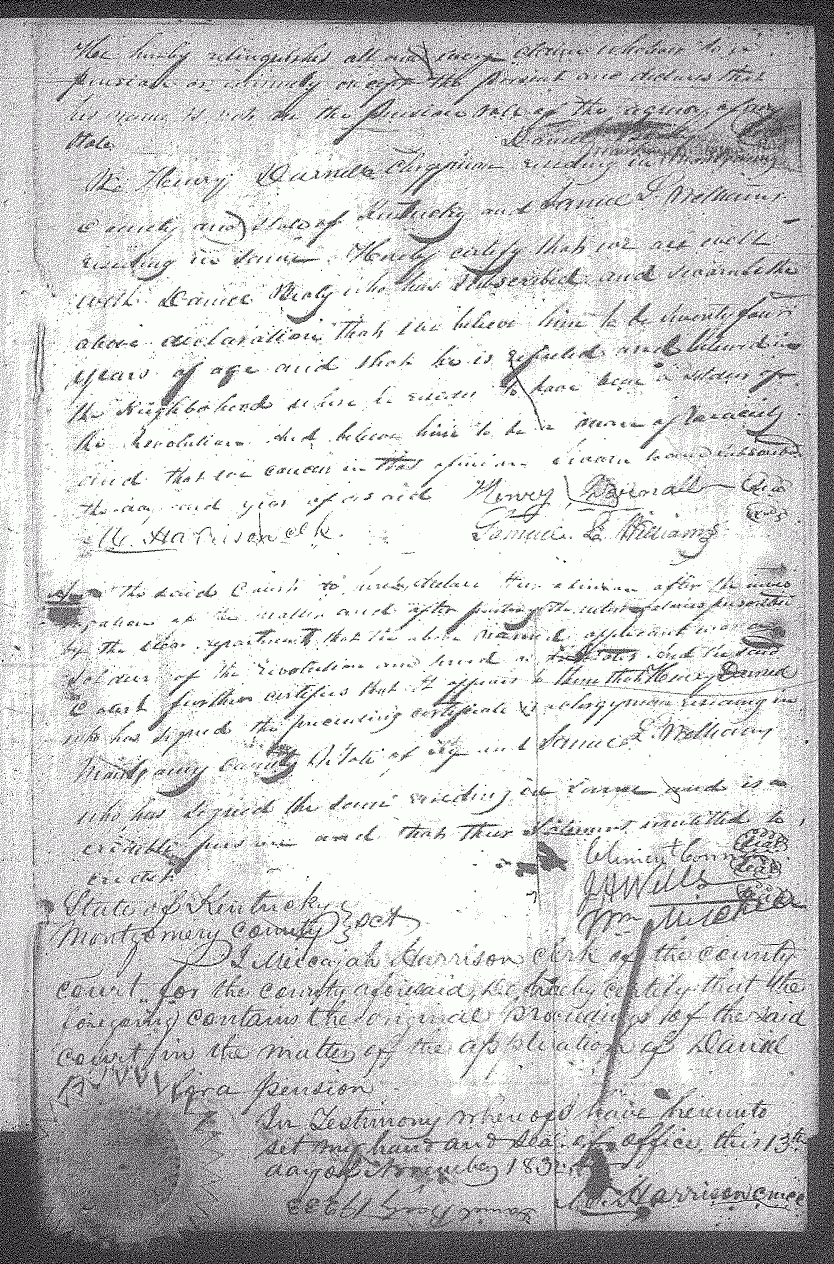 He hereby relinquishes all and every claim whatsoever to a
pension or annuity except the present and declares that
his name is not on the pension role of the agency of any
State
Daniel
We Henry Darnell Clergyman residing in Montgomery
County and State of Kentucky and Samuel L. Williams
residing in same Hereby certify that we are well
with Daniel who has subscribed and sworn to the
above declaration that we believe him to be seventy four
years of age and that he is reputed and believed in
the Neighborhood where he resides to have been a soldier of
the Revolution And believe him to be a man of Veracity
and that we concur in that opinion Sworn to and subscribed
the day and year aforesaid Henry Darnall Seal
M. Harrison clk. Samuel L Williams Seal
the said Court do hereby declare their opinion after the
of the matter and after putting the interrogatories prescribed
by the War department that the above named applicant was a
Soldier of the Revolution and served as he states and the said
Court further certifies that it appears to them that Henry Darnell
who has signed the preceeding certificate is a clergyman residing in
Montgomery County & State of Ky and Samuel L. Williams
who has signed the same residing in same and is a
credible person and that their statement is entitled to
credit.
Seal
J A Wells Seal
Wm Mitchell Seal
State of Kentucky
Montgomery County Sct
I Micajah Harrison clerk of the county
court for the county aforesaid, do hereby certify that the
foregoing contains the original proceedings of the said
court in the matter of the application of Daniel
for a pension
In Testimony whereof I have hereunto
set my hand and seal of office, this 13th
day of November 183
M. Harrison cmcc
Daniel